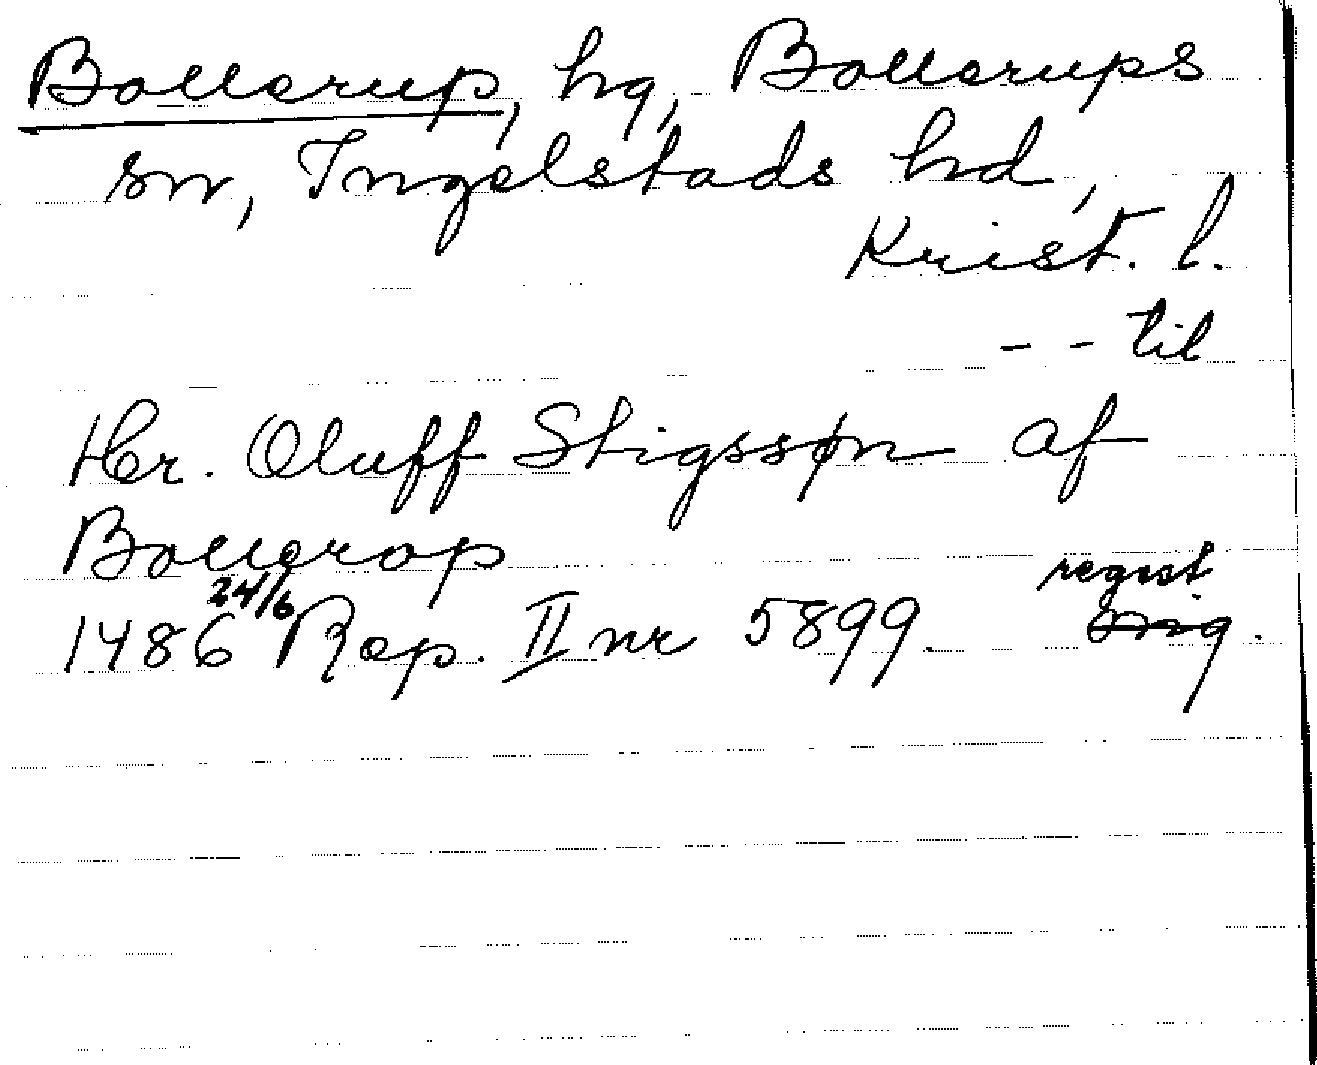 Bollerup, hg, Bollerups
sn, Ingelstads hd,
Krist. l.
- - til
Her. Oluff Stigssøn af
Bollerop
regist
1486 24/6 Rep. II nr 5899. orig.